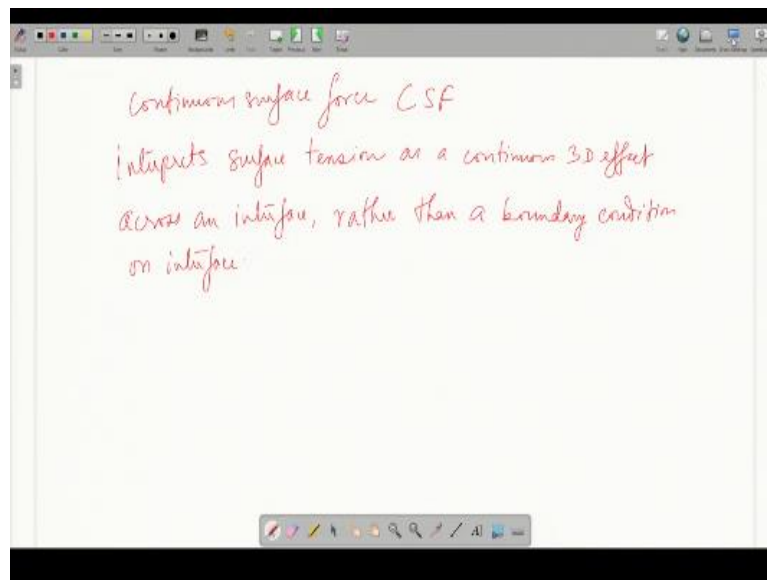 Continuous surface force CSF
interprets surface tension as a continuous 3D effect
across an interface, rather than a boundary condition
on interface.